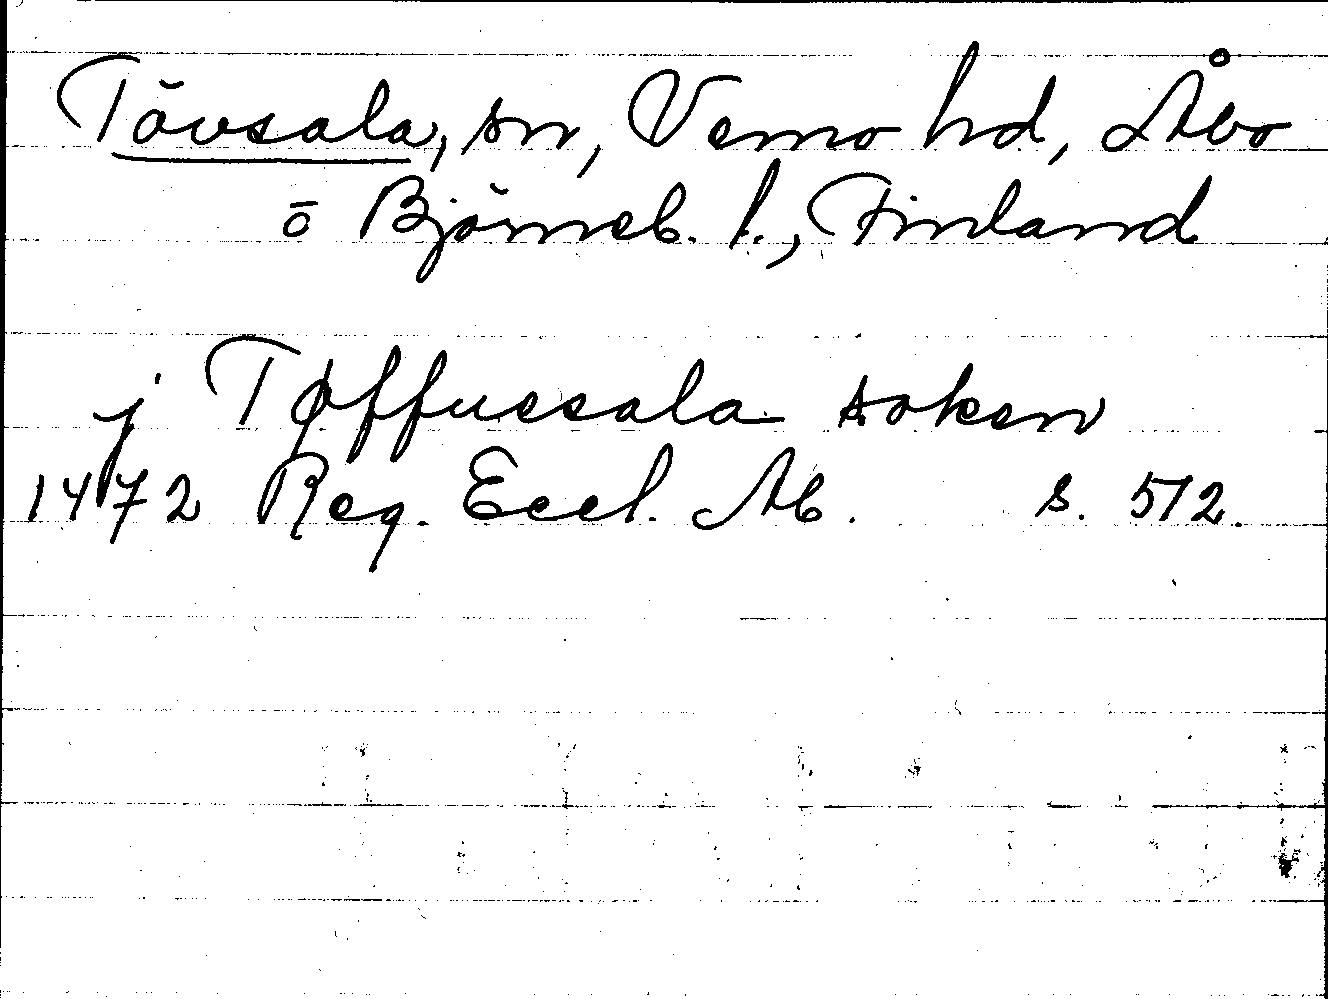 Tövsala, sn, Vemo hd, Åbo
ō Björneb. l., Finland
j Tøffuesala soken
1472 Reg. Eccl. Ab. s. 512.